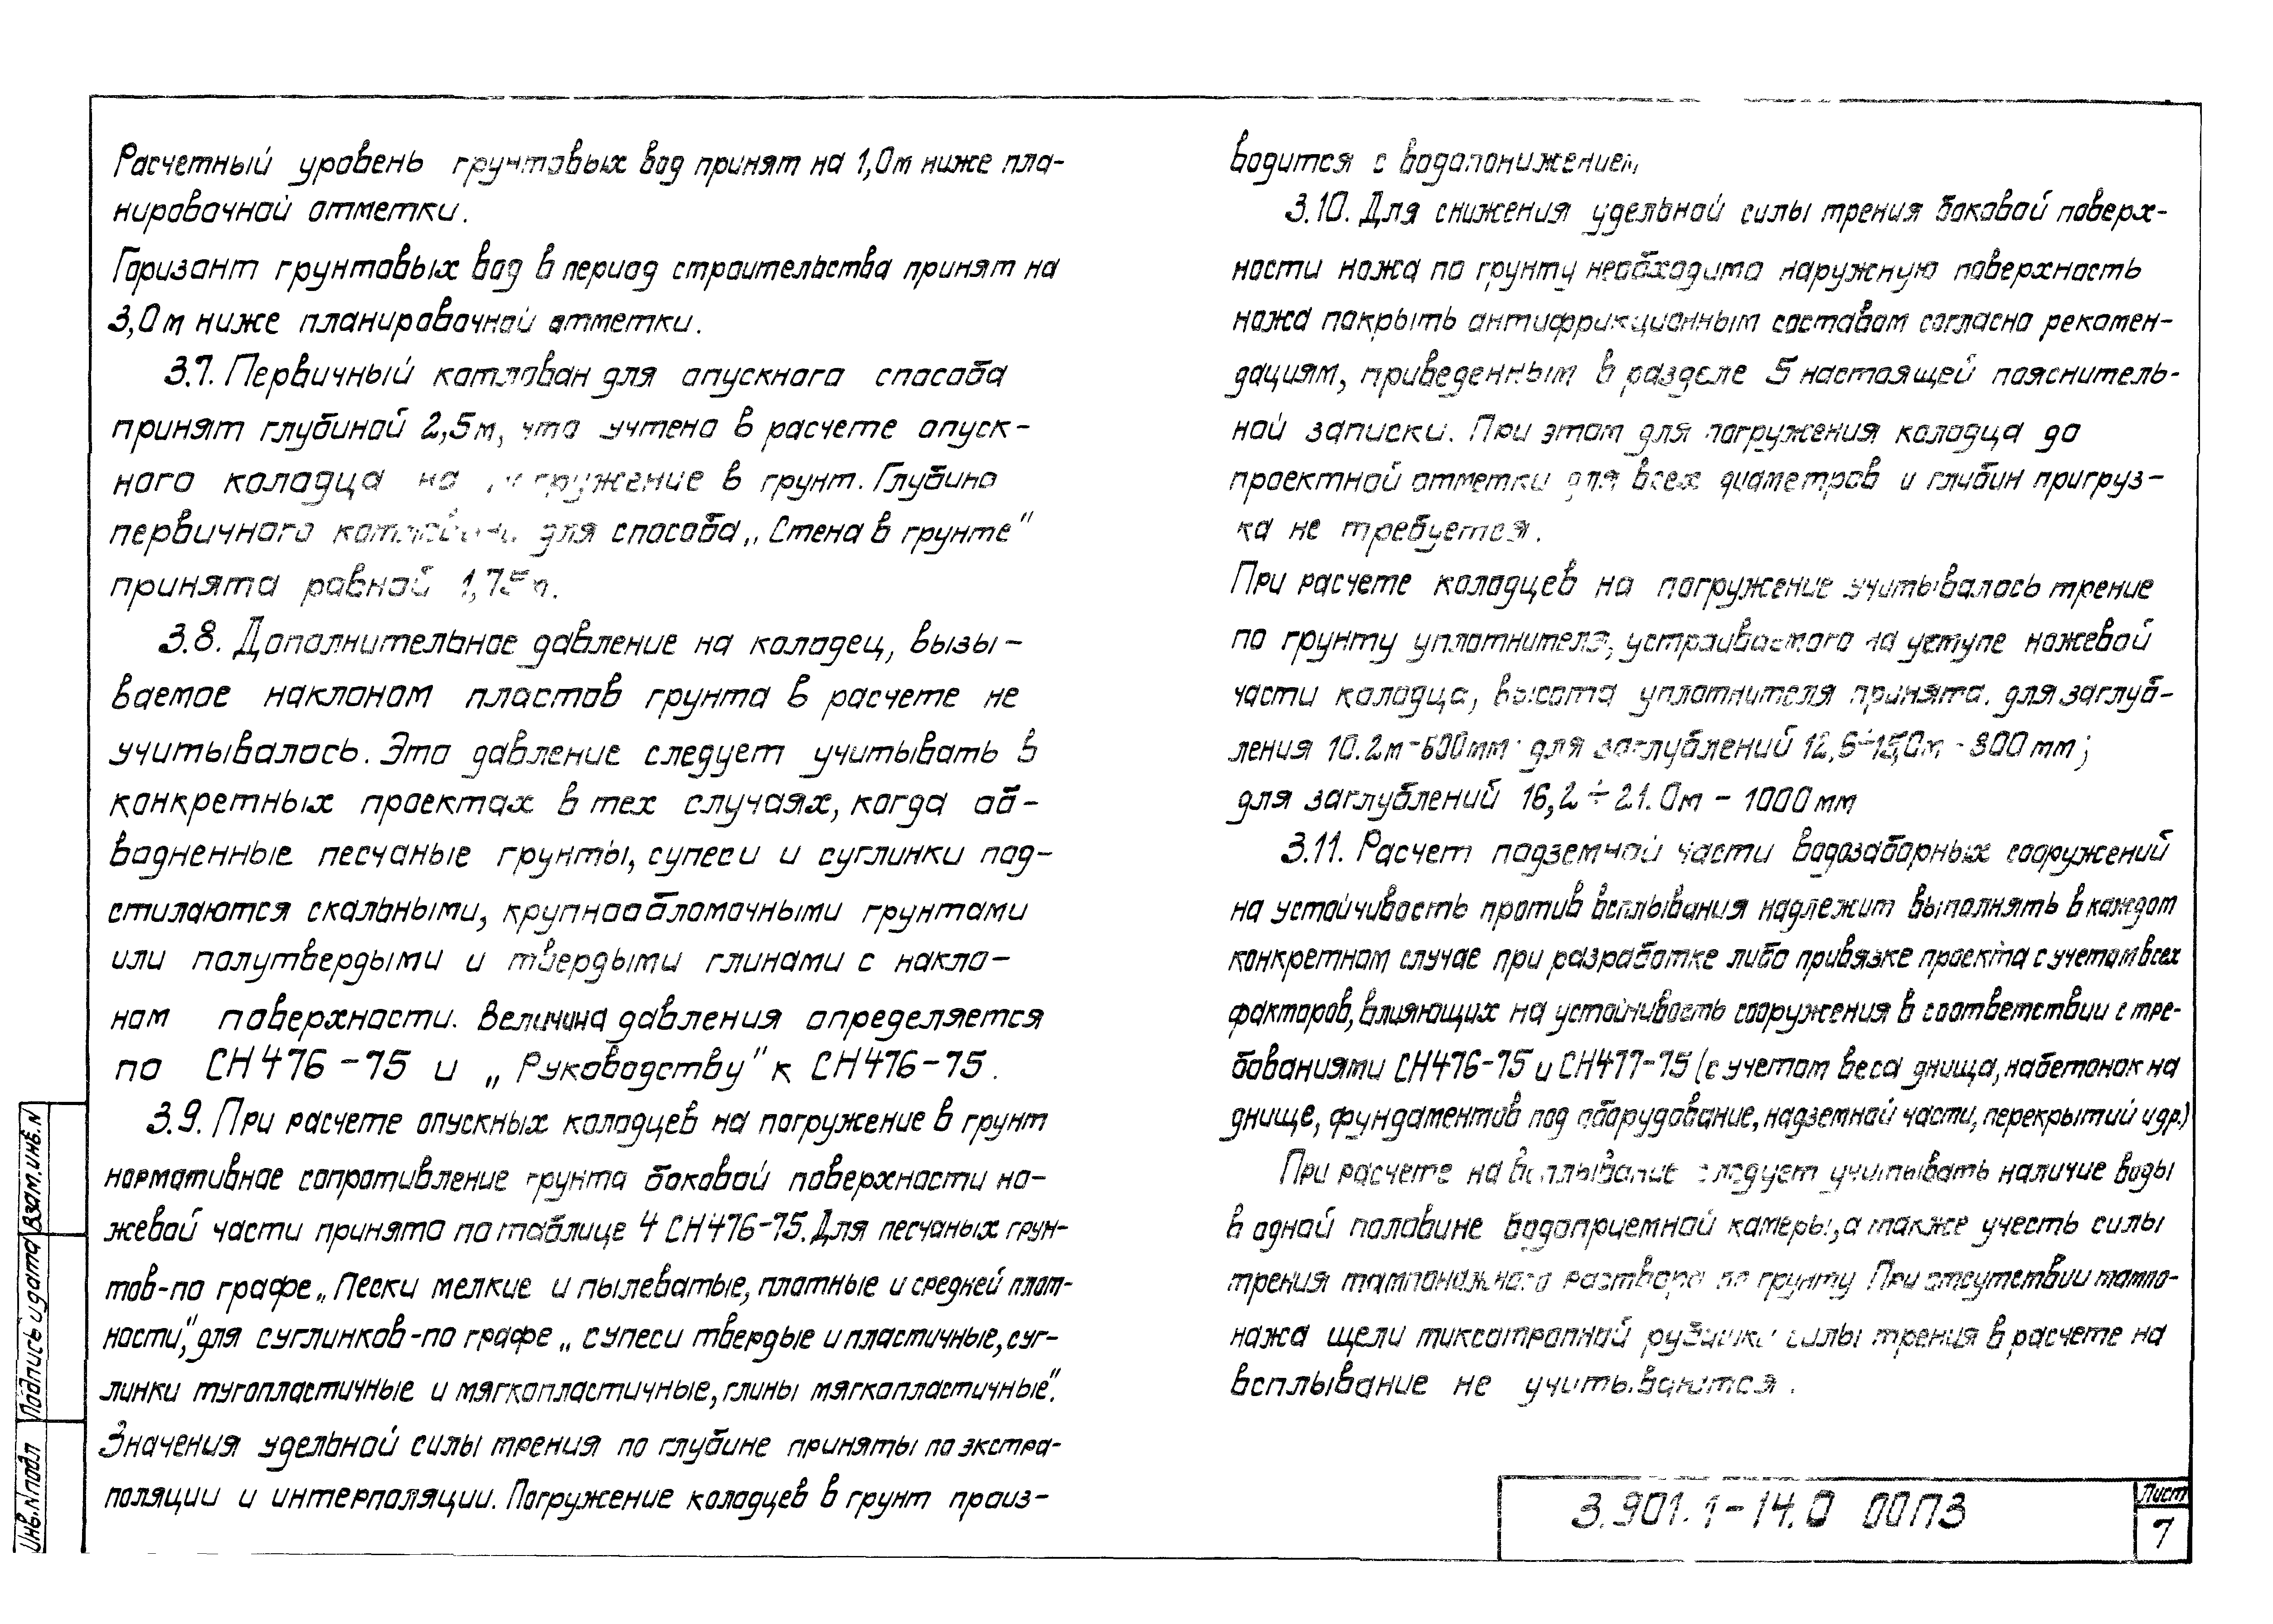 Расчетный уровень грунтовых вод принят на 1,0м ниже пла-
нировочной отметки.
Горизонт грунтовых вод в период строительства принят на
3,0м ниже планировочной отметки.
3.7. Первичный котлован для опускного способа
принят глубиной 2,5м, что учтено в расчете опуск-
ного колодца на погружение в грунт. Глубина
первичного котлована для способа „Стена в грунте"
принята равной 1,75м.
3.8. Дополнительное давление на колодец, вызы-
ваемое наклоном пластов грунта в расчете не
учитывалось. Это давление следует учитывать в
конкретных проектах в тех случаях, когда об-
водненные песчаные грунты, супеси и суглинки под-
стилаются скальными, крупнообломочными грунтами
или полутвердыми и твердыми глинами с накло-
ном поверхности. Величина давления определяется
по СН476-75 и „Руководству" к СН476-75.
3.9. При расчете опускных колодцев на погружение в грунт
нормативное сопротивление грунта боковой поверхности но-
жевой части принято по таблице 4 СН476-75. Для песчаных грун-
тов-по графе „Пески мелкие и пылеватые, плотные и средней плот-
ности", для суглинков-по графе „супеси твердые и пластичные, суг-
линки тугопластичные и мягкопластичные, глины мягкопластичные".
Значения удельной силы трения по глубине приняты по экстра-
поляции и интерполяции. Погружение колодцев в грунт произ-
водится с водопонижением
3.10. Для снижения удельной силы трения боковой поверх-
ности ножа по грунту необходимо наружную поверхность
ножа покрыть антифрикционным составом согласно рекомен-
дациям, приведенным в разделе 5 настоящей пояснитель-
ной записки. При этом для погружения колодца до
проектной отметки для всех диаметров и глубин пригруз-
ка не требуется.
При расчете колодцев на погружение учитывалось трение
по грунту уплотнителя, устраиваемого на уступе ножевой
части колодца, высота уплотнителя принята. для заглуб-
ления 10.2м-600мм; для заглублений 12,6÷15,0м - 800мм;
для заглублений 16,2÷21.0м - 1000мм
3.11. Расчет подземной части водозаборных сооружений
на устойчивость против всплывания надлежит выполнять в каждом
конкретном случае при разработке либо привязке проекта с учетом всех
факторов, влияющих на устойчивость сооружения в соответствии с тре-
бованиями СН476-75 и СН477-75 (с учетом веса днища, набетонок на
днище, фундаментов под оборудование, надземной части, перекрытий и др.)
При расчете на всплывание следует учитывать наличие воды
в одной половине водоприемной камеры, а также учесть силы
трения тампонажного раствора по грунту При отсутствии тампо-
нажа щели тиксотропной рубашки силы трения в расчете на
всплывание не учитываются.
3.901.1-14.0 00ПЗ
Лист
7
Инв.N подл
Подпись и дата
Взам.инв.N